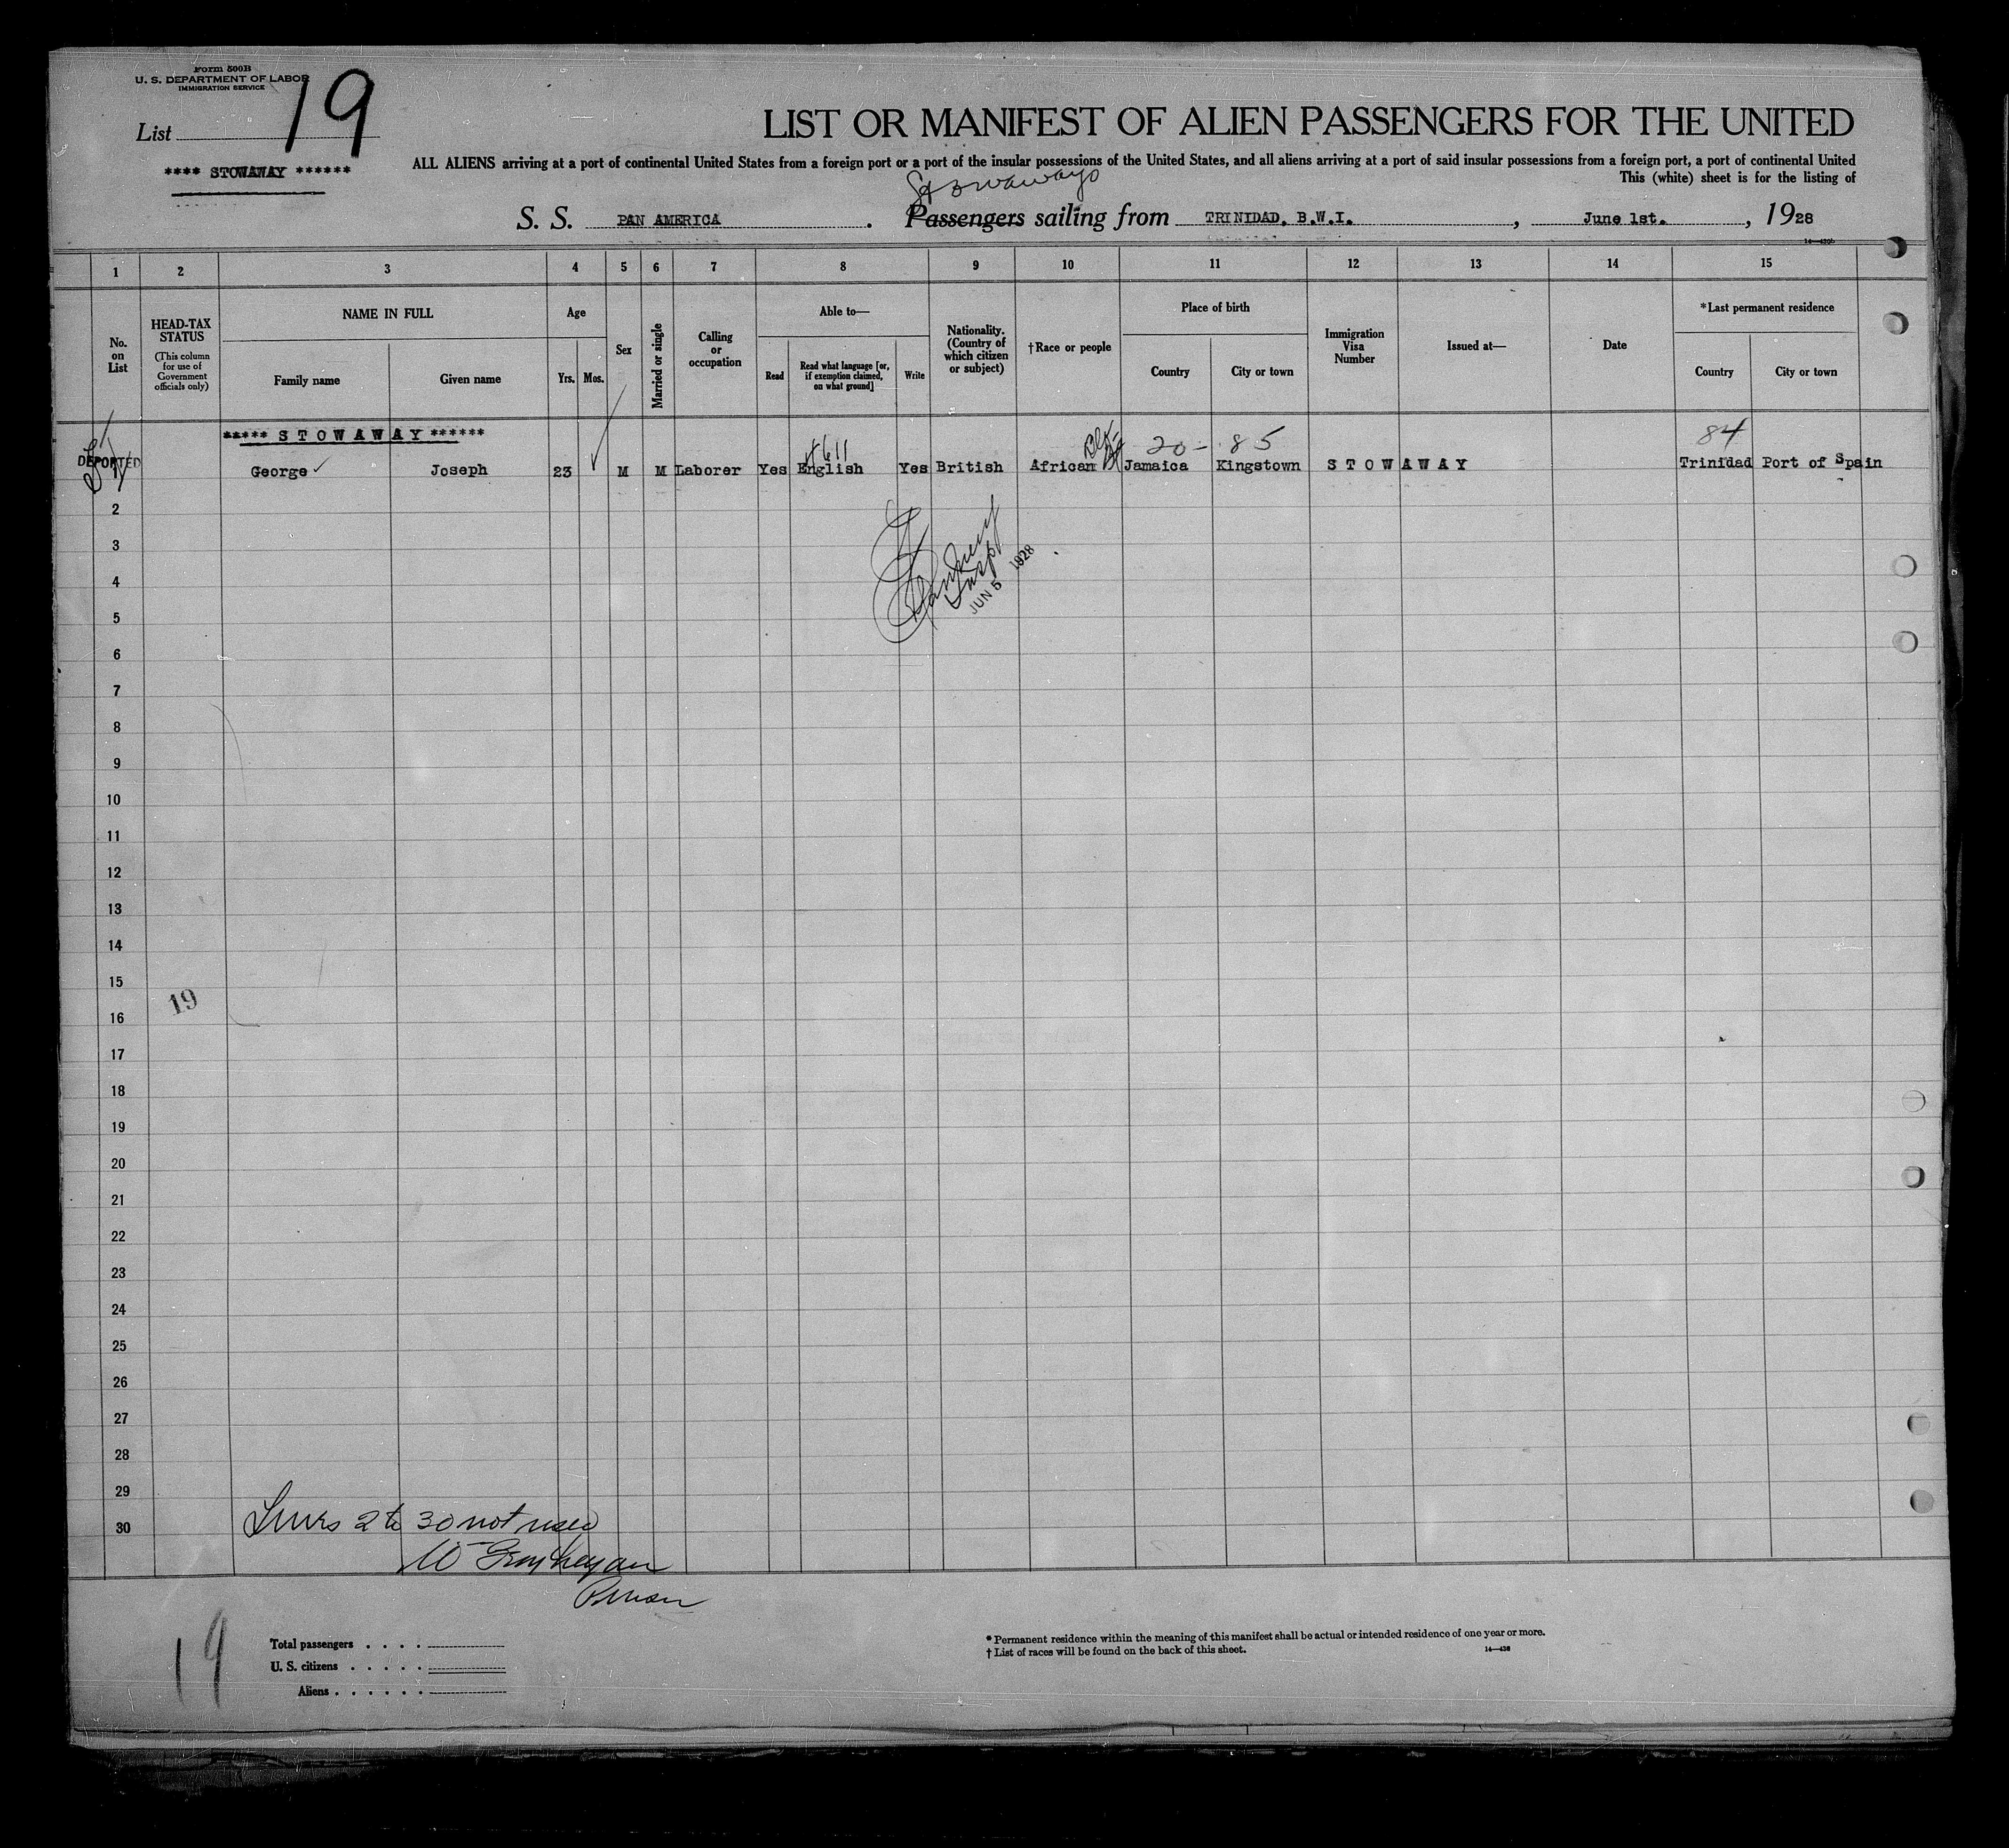 Form 500B
U. S. DEPARTMENT OF LABOR
IMMIGRATION SERVICE
List 19
**** STOWAWAY ******
LIST OR MANIFEST OF ALIEN PASSENGERS FOR THE UNITED
ALL ALIENS arriving at a port of continental United States from a foreign port or a port of the insular possessions of the United States, and all aliens arriving at a port of said insular possessions from a foreign port, a port of continental United
This (white) sheet is for the listing of
Stowaways
S. S. PAN AMERICA. Passengers sailing from TRINIDAD, B.W.I., June 1st., 1928
1 2 3 4 5 6 7 8 9 10 11 12 13 14 15
No. on List
HEAD-TAX STATUS
(This column for use of Government officials only)
NAME IN FULL
Family name
Given name
Age
Yrs.
Mos.
Sex
Married or single
Calling or occupation
Able to—
Read
Read what language [or, if exemption claimed, on what ground]
Write
Nationality. (Country of which citizen or subject)
†Race or people
Place of birth
Country
City or town
Immigration Visa Number
Issued at—
Date
*Last permanent residence
Country
City or town
***** S T O W A W A Y ******
611
20 - 85
84
DEPORTED
1 George Joseph 23 M M Laborer Yes English Yes British African Jamaica Kingstown S T O W A W A Y Trinidad Port of Spain
2
3
Insp
JUN 5 1928
4
5
6
7
8
9
10
11
12
13
14
15
19
16
17
18
19
20
21
22
23
24
25
26
27
28
29
30
Lines 2 to 30 not used
19
Total passengers . . . .
U. S. citizens . . . . .
Aliens . . . . . .
* Permanent residence within the meaning of this manifest shall be actual or intended residence of one year or more.
† List of races will be found on the back of this sheet.
14—438